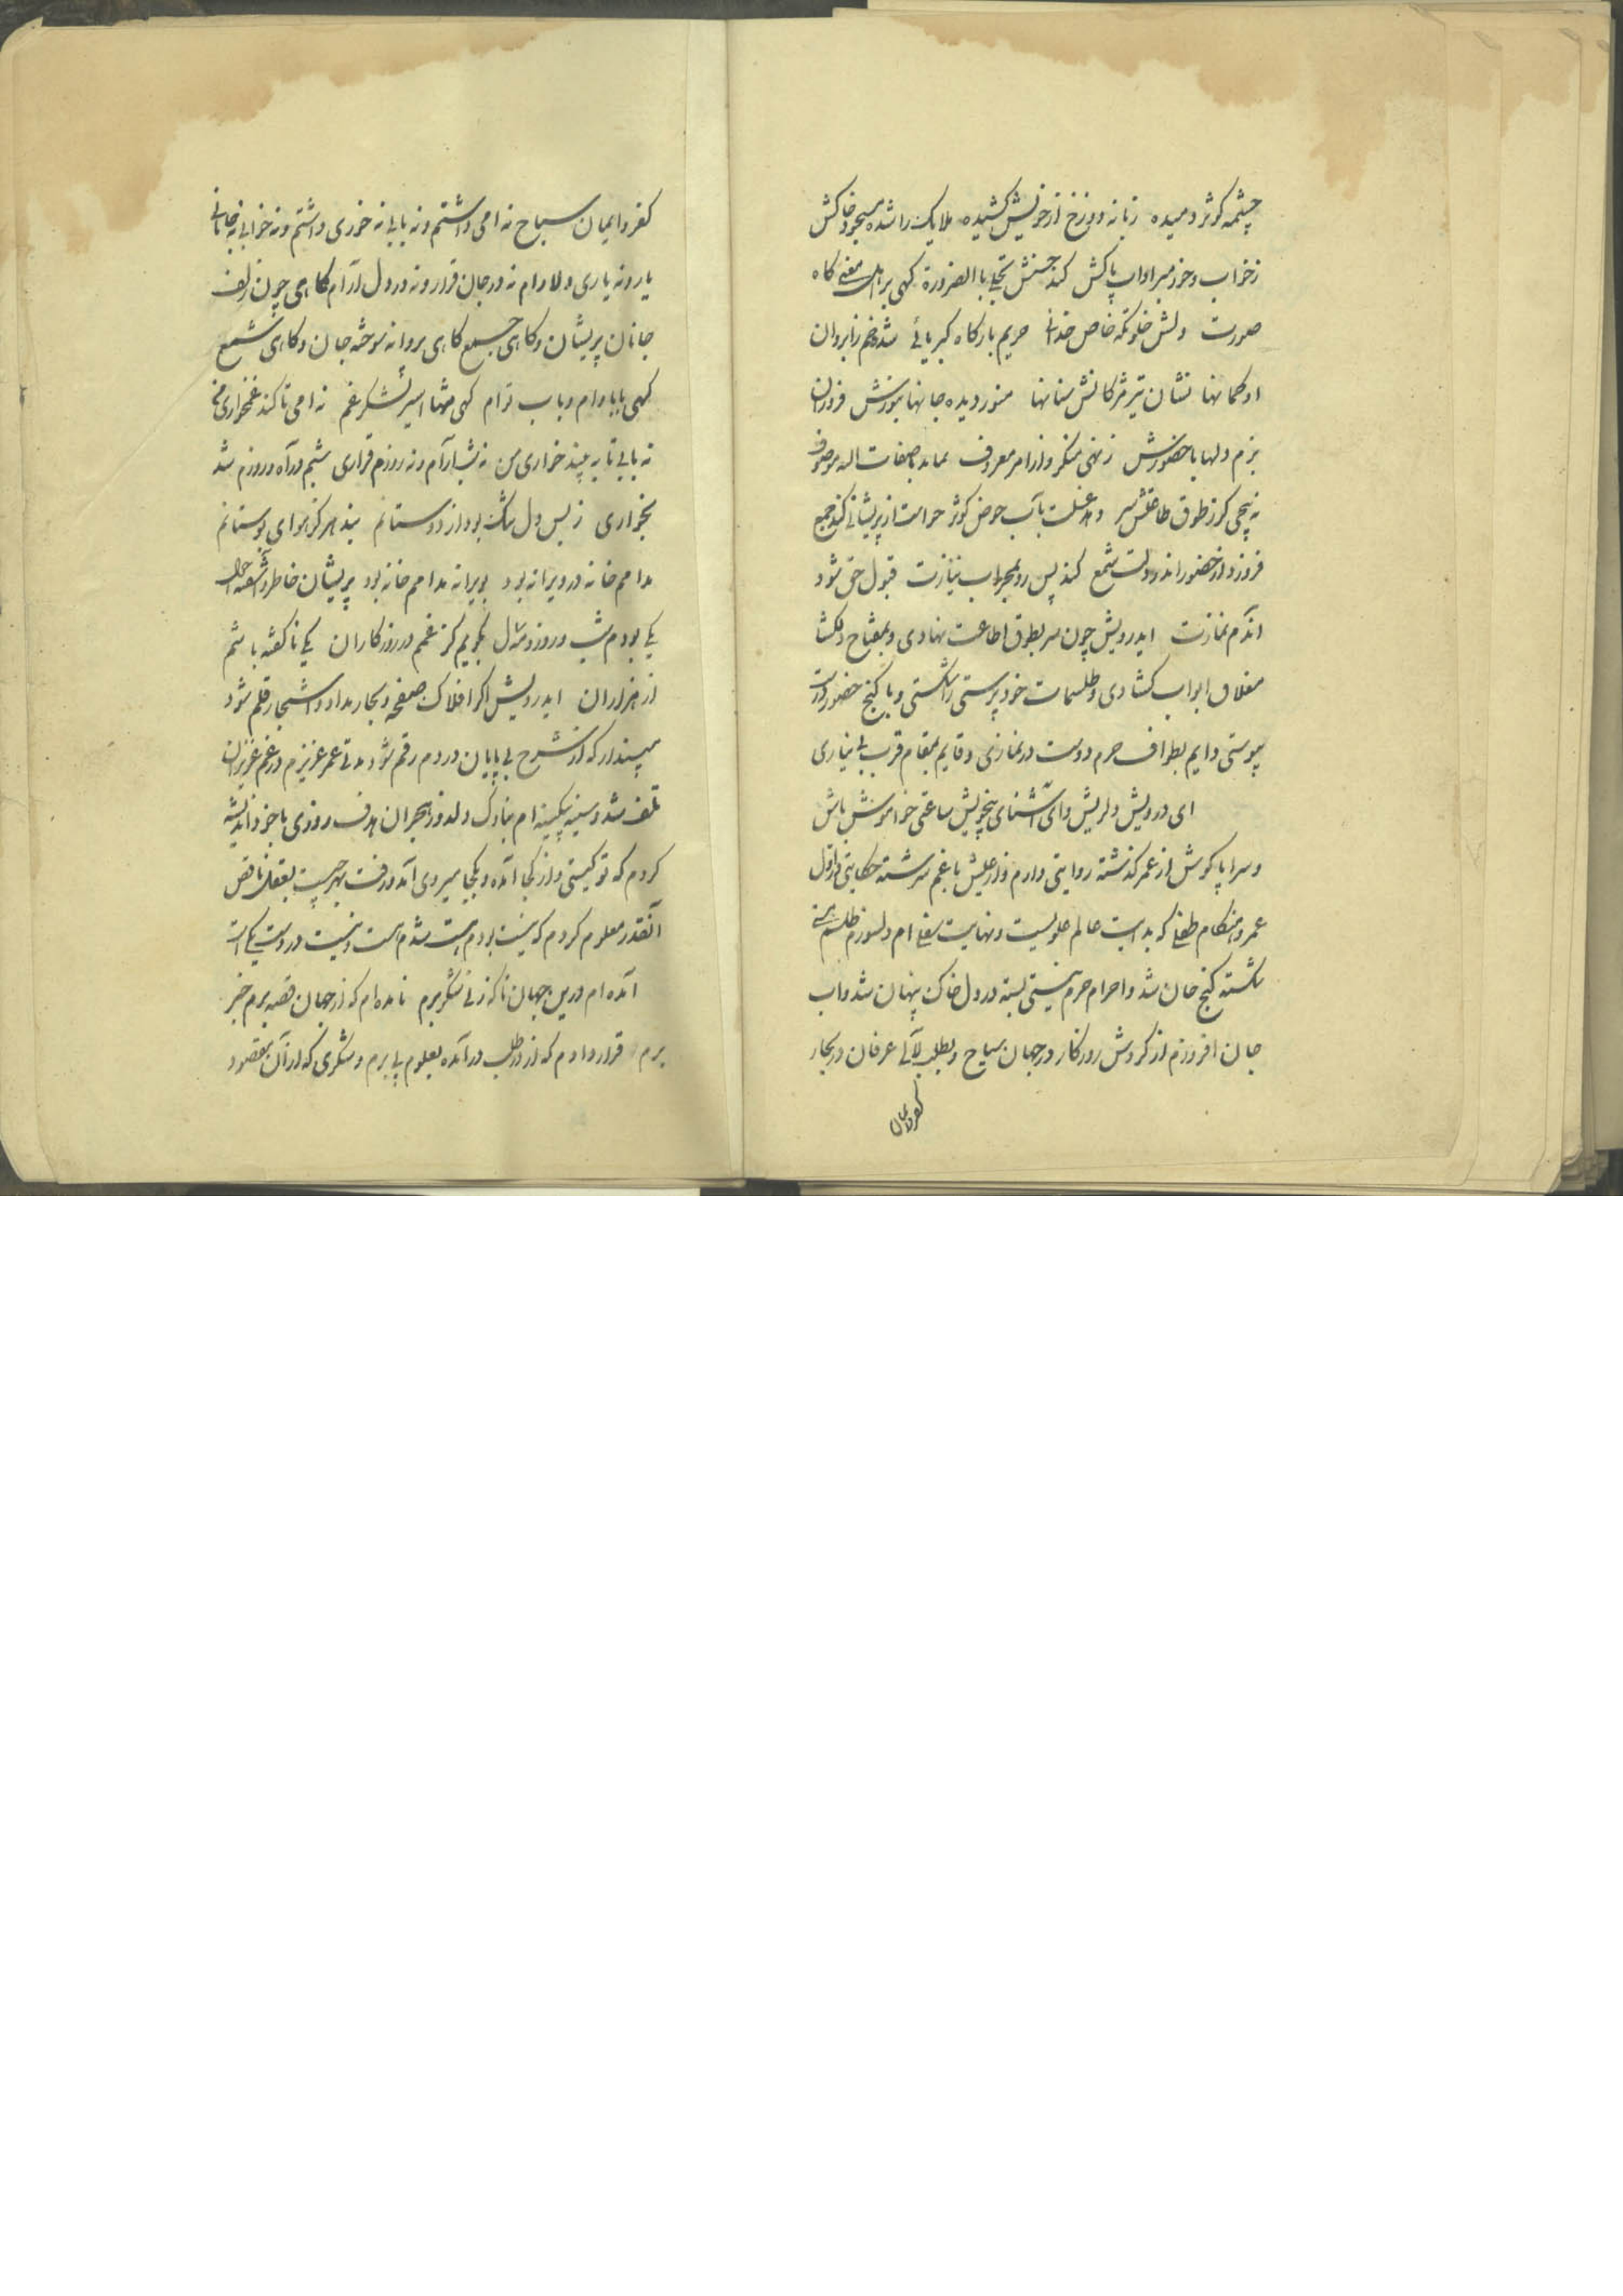 چشمه کوثر دمیده زبانه دوزخ از خویش کشیده ملایک را شده مسجود خاکش
ز خواب و خور مبرا و آب پاکش کند جنبش تجلی با الضرورة کهی بر اهل معنی کاه
صورت دلش خلوتکه خاص خدائی حریم بارکاه کبریائی شده خم ز ابروان
او کمانها نشان تیر مژکانش سنانها منور دیده جانها بنورش فروزان
بزم دلها با حضورش ز نهی منکر و از امر معروف نماید با صفات اله موصوف
نه پیچی کر ز طوق طاعتش سر دهد غسلت بآب حوض کوثر حواست از پریشانی کند جمع
فروزد از حضور اندر دلت شمع کند پس رو بمحراب نیازت قبول حق شود
آندم نمازت ایدرویش چون سر بطوق اطاعت نهادی و بمفتاح دلکشا
مغلاق ابواب کشادی و طلسمات خود پرستی را شکستی و با کنج حضور دوست
پیوستی دایم بطواف حرم دوست در نمازی و قایم بمقام قرب بی نیازی
ای درویش دلریش و ای آشنای بیخویش ساعتی خواموش باش
و سراپا کوش از عمر کذشته روایتی دارم و از عیش با غم سرشته حکایتی در اول
عمر و هنکام طفلی که بدایت عالم علویست و نهایت سفلی ام دلسوزم طلسم هستی
شکسته کنج جان شد و احرام حرم نیستی بسته در دل خاک پنهان شد و اب
جان افروزم از کردش روزکار در جهان سیاح و بطلب لآلی عرفان در بحار
کفر و ایمان
کفر و ایمان سباح نه امی داشتم و نه بابی نه خوری داشتم و نه خوابی نه خانه
یار و نه یاری دلارام نه در جان قرار و نه در دل آرام کاهی چون زلف
جانان پریشان و کاهی جمع کاهی پروانه سوخته جان و کاهی شمع
کهی بابا و ام و باب توام کهی تنها اسیر لشکر غم نه امی تا کند غمخواری من
نه بابی تا به بیند خواری من نه شب آرام و نه روزم قراری شبم در آه و روزم شد
بخواری ز بس دل تنک بود از دوستانم نبد هرکز هوای بوستانم
مدامم خانه در ویرانه بود بویرانه مدامم خانه بود پریشان خاطر و آشفته احوال
یکی بودم شب و روز و مه و سال بکویم کر غمم در روزکاران یکی ناکفته باشم
از هزاران ایدرویش اکر افلاک صفحه و بحار مداد و اشجار قلم شود
مپندار که از شرح بی پایان دردم رقم شود مدتی عمر عزیزم در غم عزیزان
تلف شد و سینه بیکینه ام بناوک دلدوز هجران هدف روزی با خود اندیشه
کردم که تو کیستی و از کجا آمده و بکجا میروی آمد و رفت بهر چیست بعقل ناقص
آنقدر معلوم کردم که نیست بودم هست شدم هست و نیست در دست یکی است
آمده ام درین جهان تا که ز نی شکر برم نامده ام که از جهان قصه برم خبر
برم قرار دادم که از در طلب در آمده بعلوم پی برم و شکری که از آن بمقصود